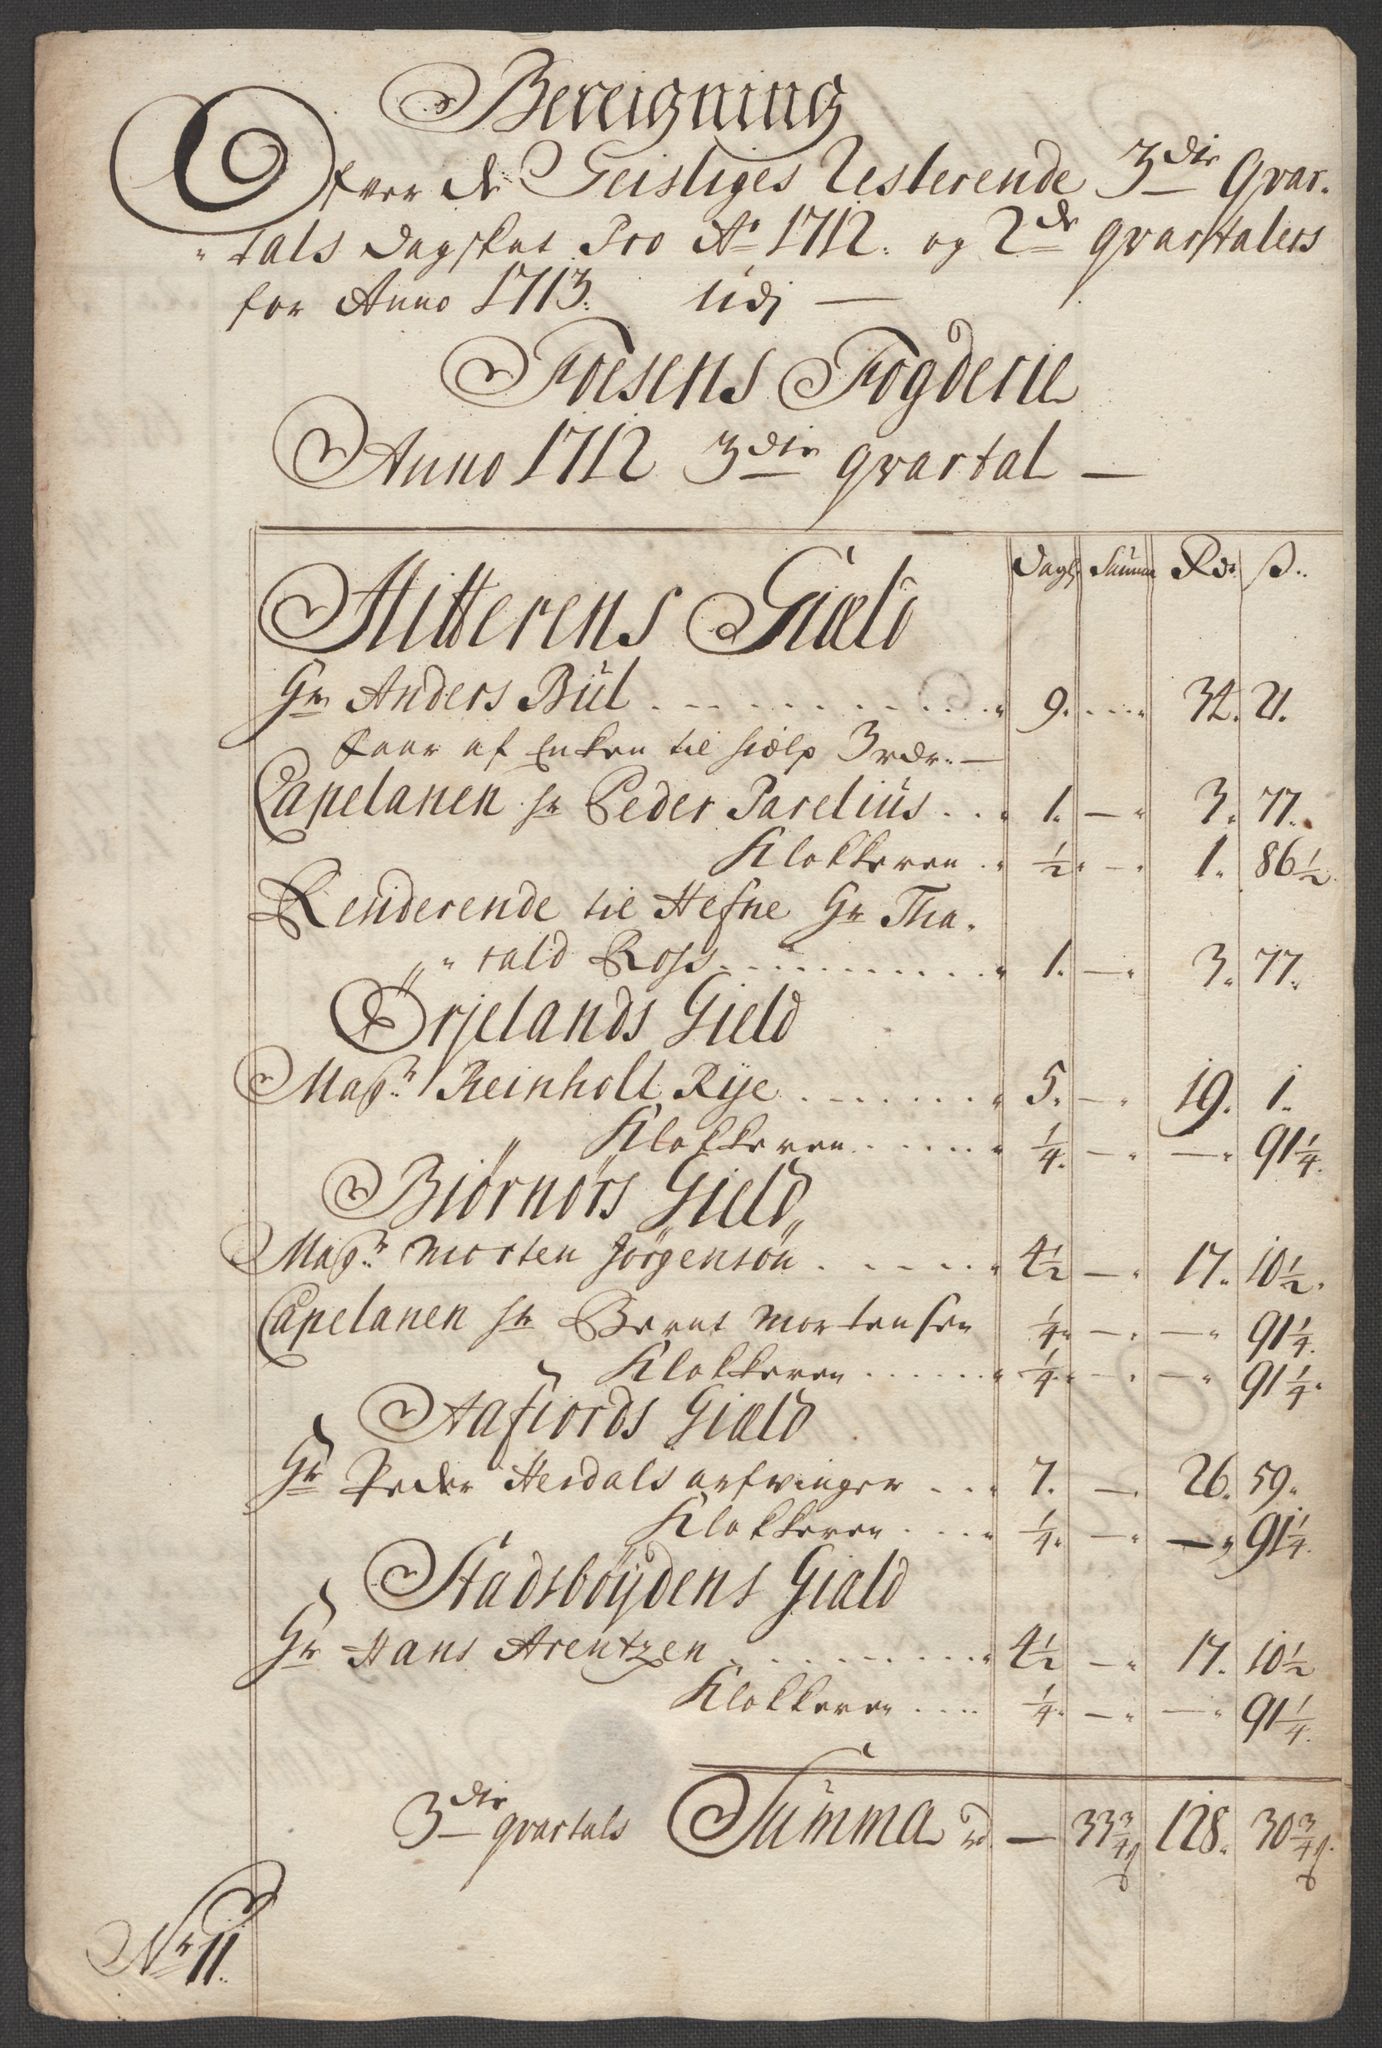 Bereigning
Ofver de Geistliges Resterende 3die Qvar-
tals dagskat Pro Ao 1712. og 2de qvartalers
for Anno 1713. Udj —
Foesens Fogderie
Anno 1712 3die qvartal —
Dagl. Summa Rdr ß..
Hitterens Giæld
Hr Anders Bül 9. 34. 21.
faar af Enken til hielp 3 rdr. —
Capelanen hr Peder Parelius 1. — 3. 77.
Klokkeren ½ — 1. 86½
Residerende til Hefne Hr Tha-
rald Ross 1. — 3. 77.
Ørjelands Gield
Magr. Reinholt Rÿe 5. — 19. 1.
Klokkeren ¼. — — 91¼.
Biørnørs Gield
Magr. Morten Jørgensøn 4½ — 17. 10½.
Capelanen hr Bernt Mortensen ¼. — — 91¼.
Klokkeren ¼. — — 91¼.
Aafiords Giæld
Hr Peder Herdals arfvinger 7. — 26. 59.
Klokkeren ¼. — — 91¼.
Stadsbøÿdens Giæld
Hr Hans Arentzen 4½ — 17. 10½
Klokkeren ¼. — — 91¼.
3die qvartals Summa — 33¾ 128. 30¾
No 11.